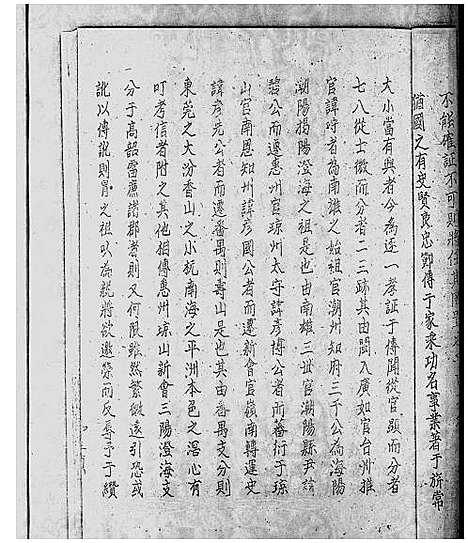 不能確証不可則將
猶國之有史賢良忠鄭傳于家乘功名事業著于旂常
大小當有與者今為逐一考証于傳聞從官顯而分者
七八從士微而分者二三跡其由閩入廣如官台州推
官諱時者為南雄之始祖官潮州知府三千公為海陽
潮陽揭陽澄海之祖是也由南雄三世官潮陽縣尹諱
公而遷惠州官琼州太守諱彥博公者而蕃衍于琼
山官南恩知州諱彥國公者而遷新會官嶺南轉運史
諱彥先公者而遷番禺則壽山是也其由番禺支分則
東莞之大汾香山之小杬南海之平洲本邑之滘心有
可考信者附之其他相傳惠州琼山新會三陽澄海支
分于高韶雷應諸郡者則又何限雖然繁微遠引恐或
訛以傳訛則冒之祖以為說將欲邀榮而反辱予于纘